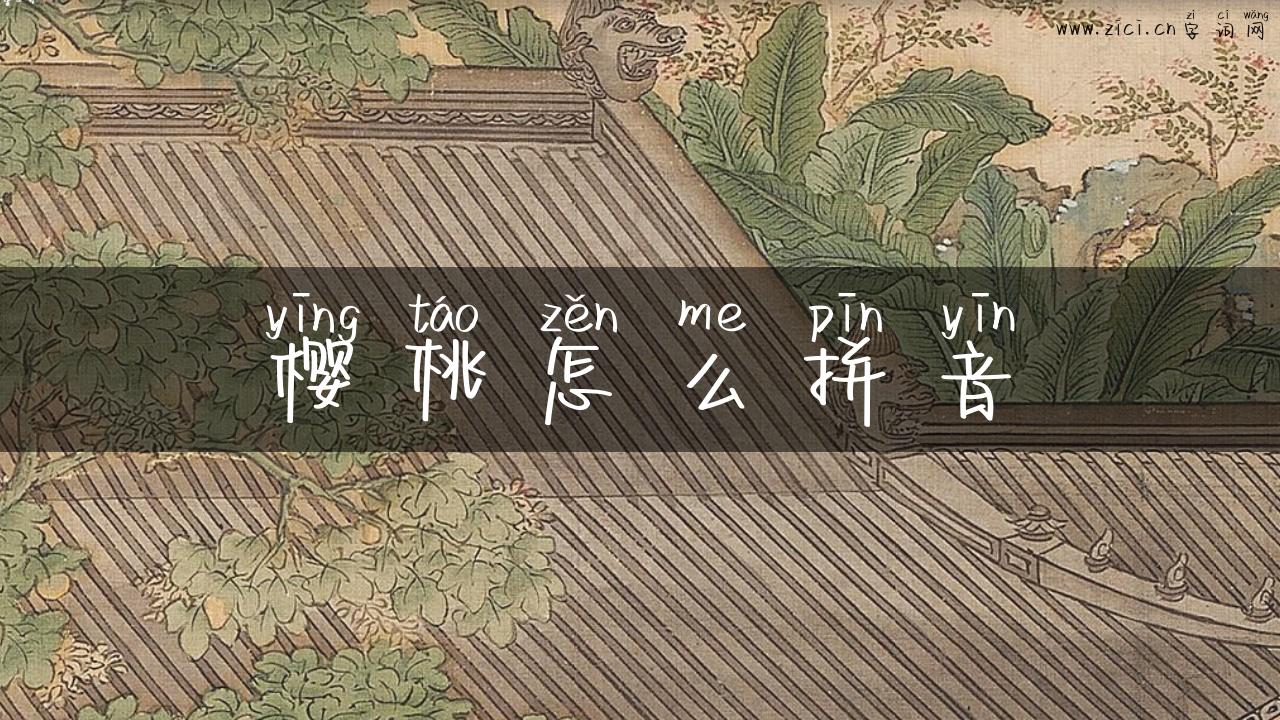 zì cí wǎng
www.zici.cn 字词网
yīng táo zěn me pīn yīn
樱桃怎么拼音